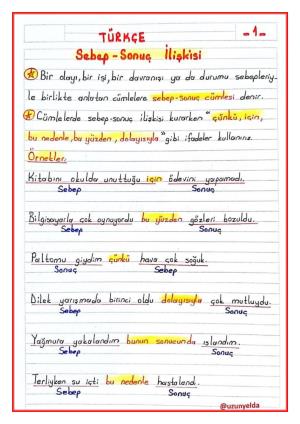 TÜRKÇE
-1-
Sebep-Sonuç İlişkisi
Bir olayı, bir işi, bir davranışı ya da durumu sebepleriy-
le birlikte anlatan cümlelere sebep-sonuç cümlesi denir.
Cümlelerde sebep-sonuç ilişkisi kurarken "çünkü, için,
bu nedenle, bu yüzden, dolayısıyla" gibi ifadeler kullanırız.
Örnekler:
Kitabını okulda unuttuğu için ödevini yapamadı.
Sebep Sonuç
Bilgisayarla çok oynuyordu bu yüzden gözleri bozuldu.
Sebep Sonuç
Paltomu giydim çünkü hava çok soğuk.
Sonuç Sebep
Dilek yarışmada birinci oldu dolayısıyla çok mutluydu.
Sebep Sonuç
Yağmura yakalandım bunun sonucunda ıslandım.
Sebep Sonuç
Terliyken su içti bu nedenle hastalandı.
Sebep Sonuç
@uzunyelda